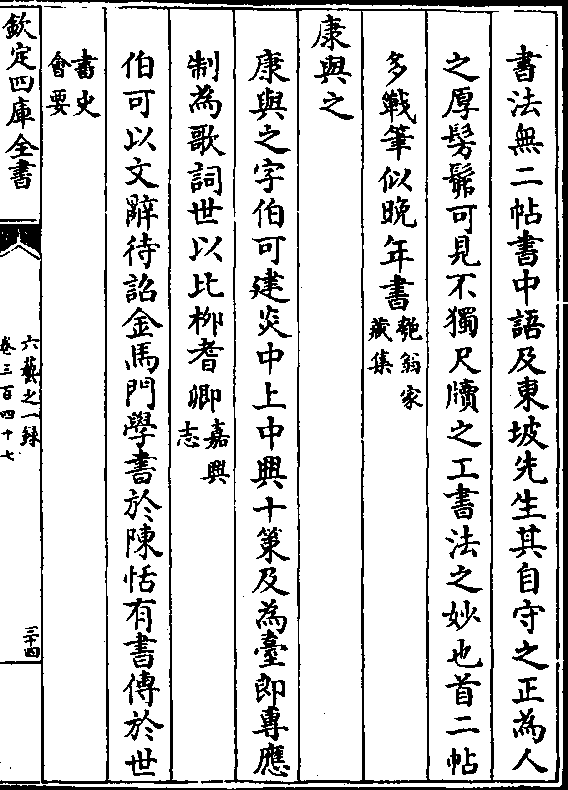 書法無二帖書中語及東坡先生其自守之正為人
之厚髣髴可見不獨尺牘之工書法之妙也首二帖
多戰筆似晚年書匏翁家
藏集
康與之
康與之字伯可建炎中上中興十策及為臺即專應
制為歌詞世以比柳耆卿嘉興
志
伯可以文辭待詔金馬門學書於陳恬有書傳於世
書史
會要
欽定四庫全書
六藝之一録
卷三百四十七
三十四